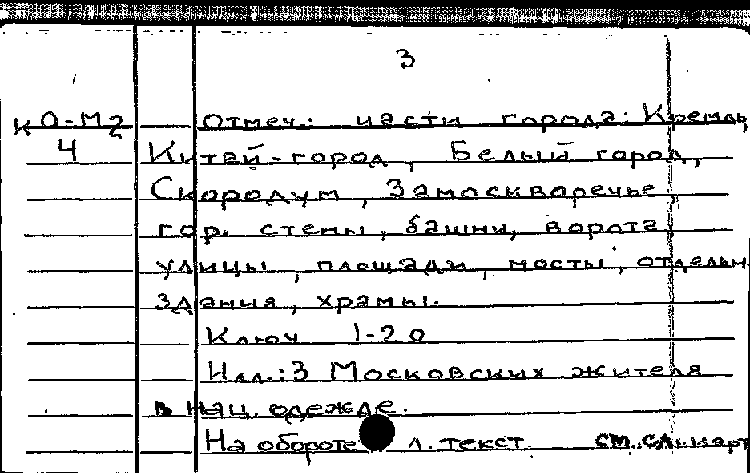 3
КО-М2 Отмеч.: части города: Кремль,
4 Китай-город, Белый город,
Скородум, Замоскваречье,
гор. стены, башни, ворота,
улицы, площади, мосты, отдельн.
здания, храмы.
Ключ 1-20
Илл.: 3 Московских жителя
в нац. одежде.
На обороте л. текст. см. сл. карт